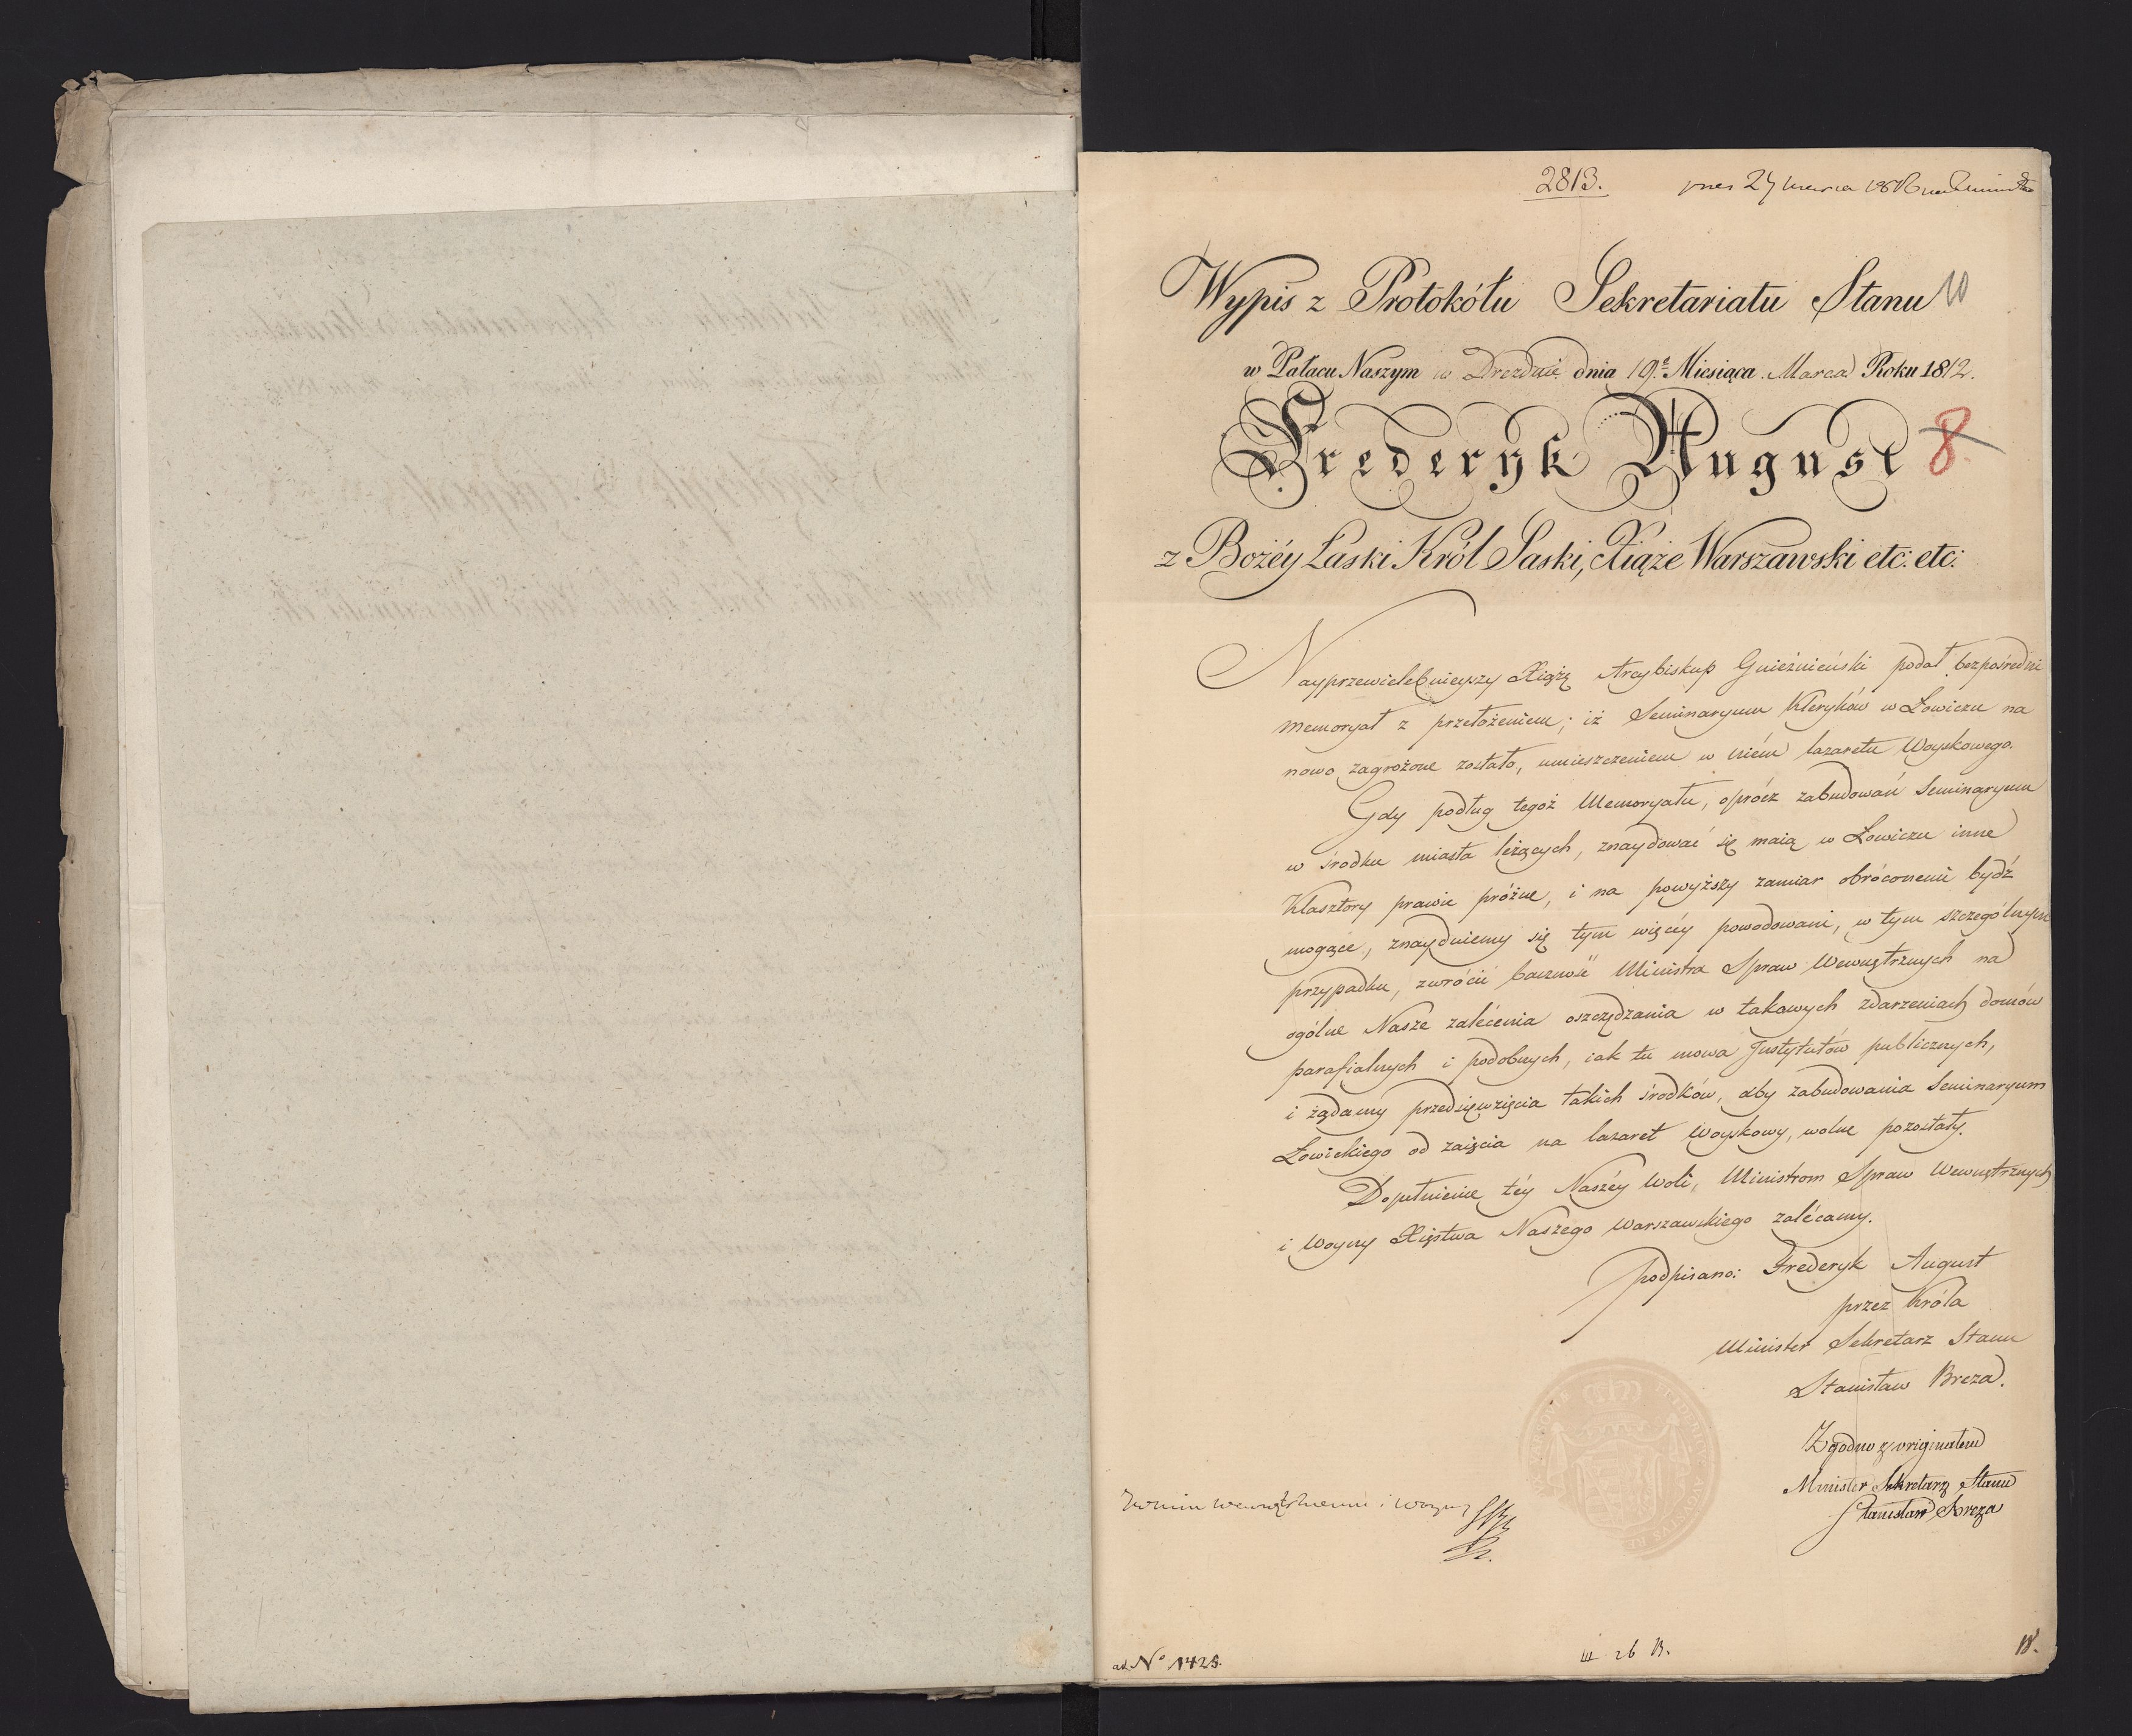 2813.
27 marca
Wypis z Protokółu Sekretariatu Stanu
10
w Pałacu Naszym w Dreźnie dnia 19º Miesiąca Marca Roku 1812.
Frederyk August
8
z Bożéy Łaski Król Saski, Xiąże Warszawski etc: etc:
Nayprzewielebnieyszy Xiążę Arcybiskup Gnieźnieński podał bezpośredni
memoryał z przełożeniem; iż Seminaryum Kleryków w Łowiczu na
nowo zagrożone zostało, umieszczeniem w niém lazaretu Woyskowego.
Gdy podług tegoż Memoryału, oprócz zabudowań Seminaryum
w środku miasta leżących, znaydować się maią w Łowiczu inne
Klasztory prawie próżne, i na powyższy zamiar obróconemi bydź
mogące, znayduiemy się tym więcéy powodowani, w tym szczególnym
przypadku, zwrócić baczność Ministra Spraw Wewnętrznych na
ogólne Nasze zalécenia oszczędzania w takowych zdarzeniach domów
parafialnych i podobnych, iak tu mowa Instytutów publicznych,
i żądamy przedsięwzięcia takich środków, aby zabudowania Seminaryum
Łowickiego od zaięcia na lazaret Woyskowy, wolne pozostały.
Dopełnienie téy Naszéy Woli, Ministrom Spraw Wewnętrznych
i Woyny Xięstwa Naszego Warszawskiego zalécamy.
podpisano: Frederyk August
przez Króla
Minister Sekretarz Stanu
Stanisław Breza.
Zgodno z originałem
Minister Sekretarz Stanu
Stanisław Breza
i Woyny
ad Nº 1428.
III 26 B.
18.